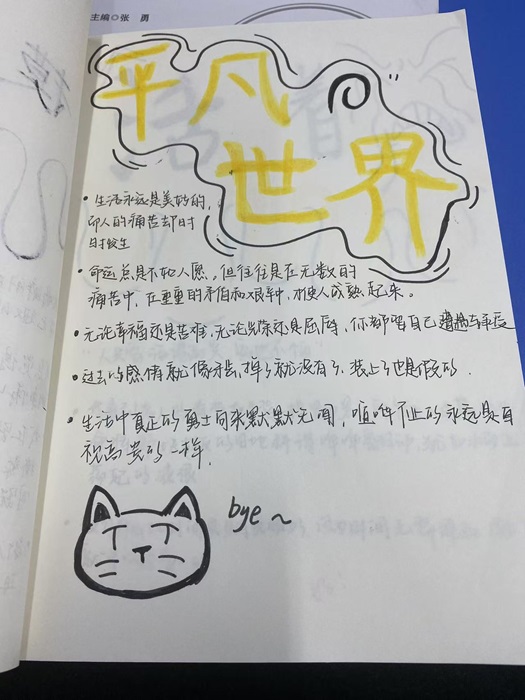 主编◎张 勇
平凡の
世界
• 生活永远是美好的,
却人的痛苦却时
时发生
• 命运总是不如人愿,但往往是在无数的
痛苦中,在重重的矛盾和艰辛中,才使人成熟起来。
• 无论幸福还是苦难,无论光荣还是屈辱,你都要自己遭遇与承受
• 过去的感情就像牙齿,掉了就没有了,装上了也是假的.
• 生活中真正的勇士向来默默无闻,喧哗不止的永远是自
视高贵的一群.
bye ~